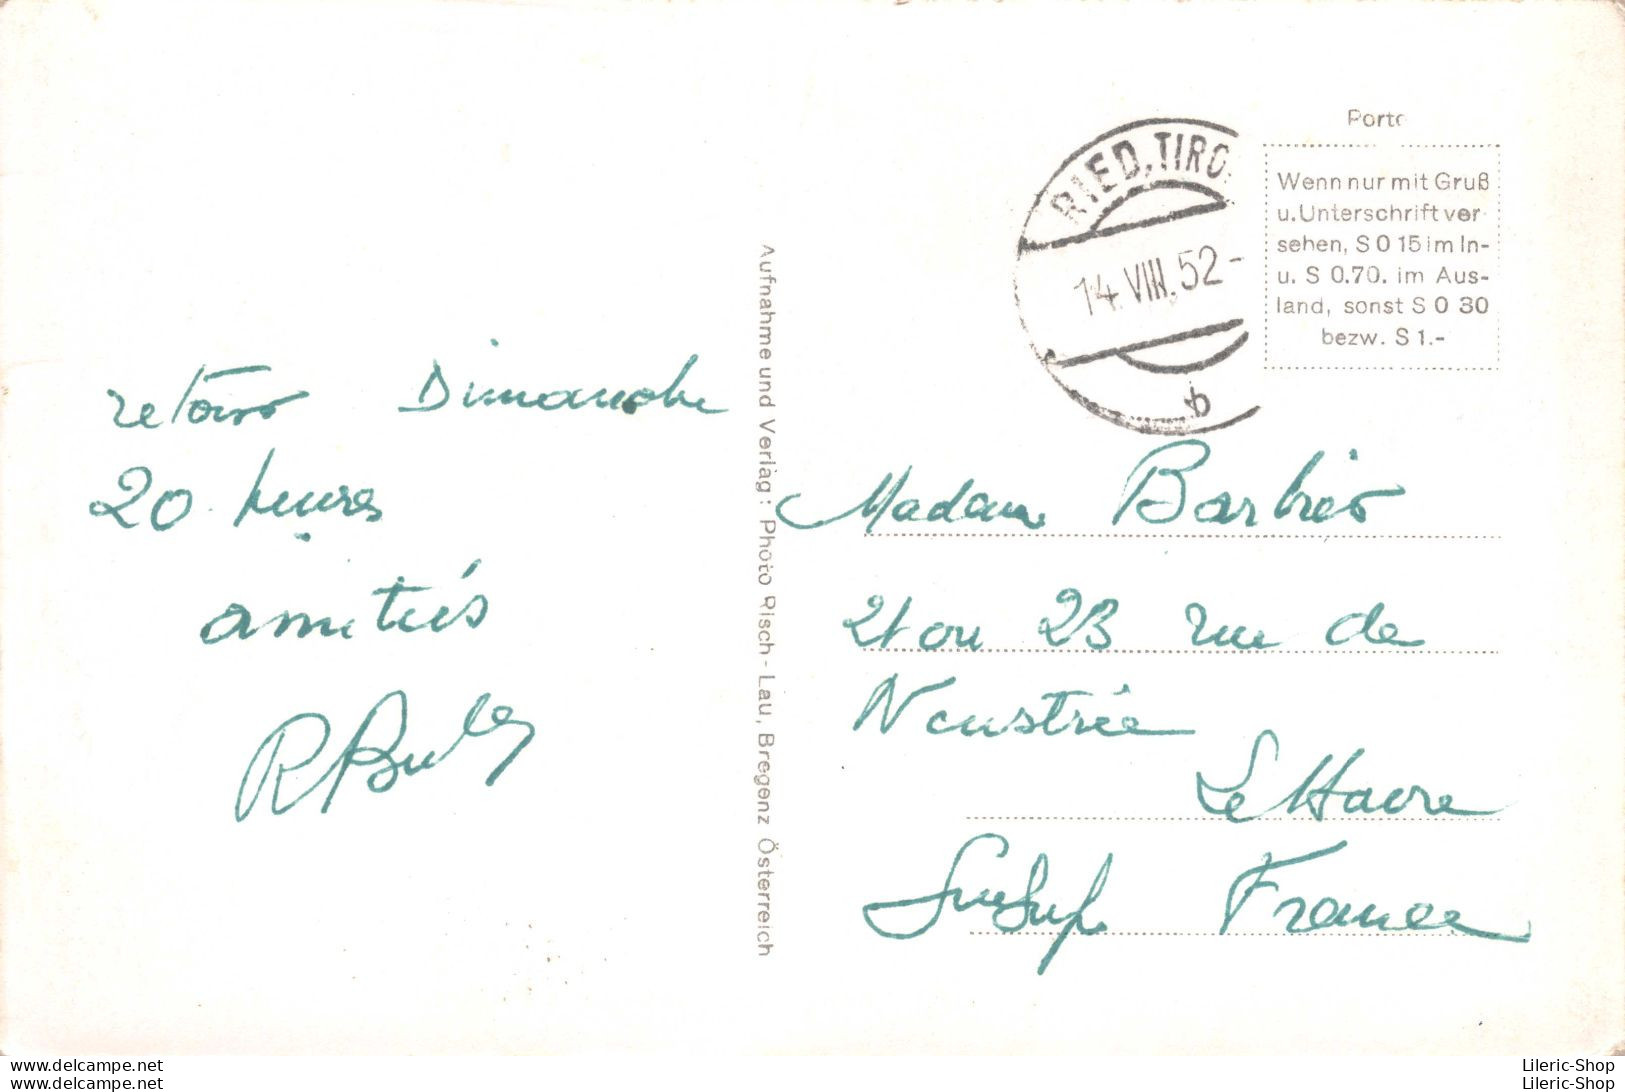 retour Dimanche
20 heures
amitiés
Aufnahme und Verlag: Photo Risch-Lau, Bregenz Österreich
RIED, TIRO
14.VIII.52-
b
Porto
Wenn nur mit Gruß
u. Unterschrift ver
sehen, S 0 15 im In-
u. S 0.70. im Aus-
land, sonst S 0 30
bezw. S 1.-
Madame Barbier
21 ou 23 rue de
Neustrie
Le Havre
France
www.delcampe.net
www.delcampe.net
Lileric-Shop
Lileric-Shop